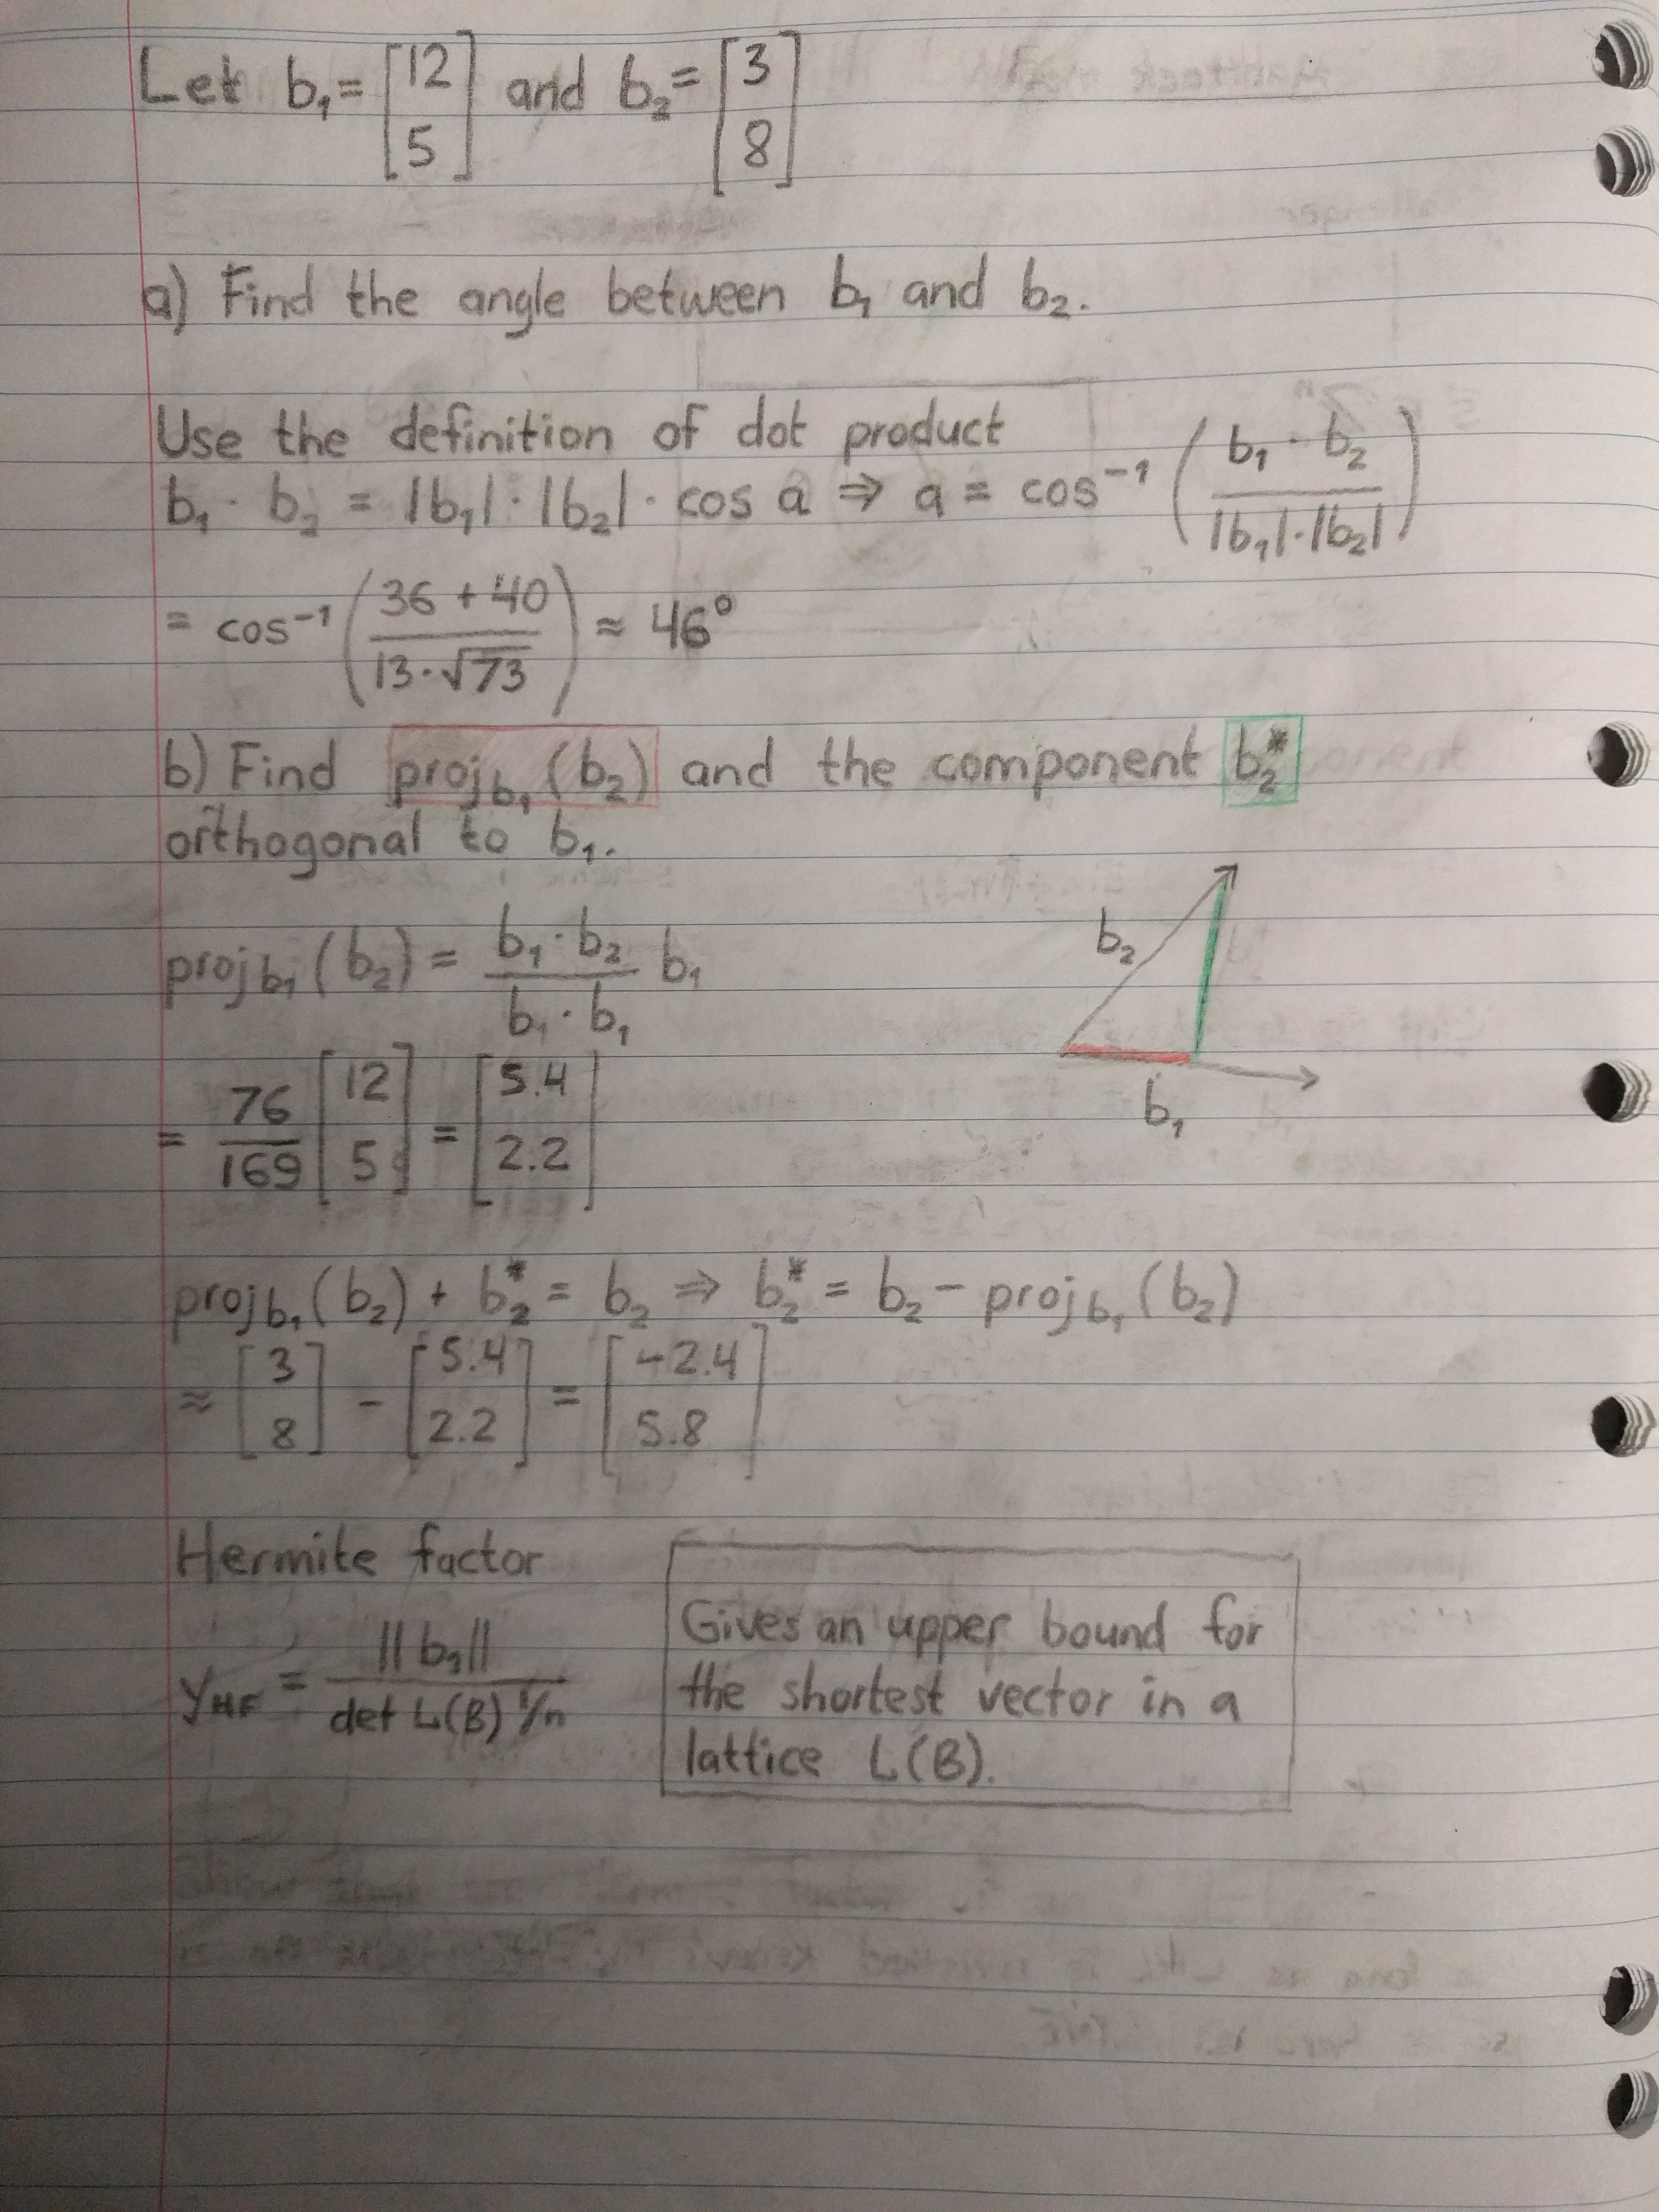 Let b₁ = [12 5] and b₂ = [3 8]
a) Find the angle between b₁ and b₂.
Use the definition of dot product
b₁ · b₂ = |b₁| · |b₂| · cos a ⇒ a = cos⁻¹ (b₁ · b₂ / |b₁|·|b₂|)
= cos⁻¹ (36 + 40 / 13·√73) ≈ 46°
b) Find proj_b₁ (b₂) and the component b₂*
orthogonal to b₁.
proj_b₁ (b₂) = b₁ · b₂ / b₁ · b₁ b₁
= 76/169 [12 5] = [5.4 2.2]
b₂
b₁
proj_b₁ (b₂) + b₂* = b₂ ⇒ b₂* = b₂ − proj_b₁ (b₂)
≈ [3 8] − [5.4 2.2] = [−2.4 5.8]
Hermite factor
y_HF = ||b₁|| / det L(B)^1/n
Gives an upper bound for
the shortest vector in a
lattice L(B).